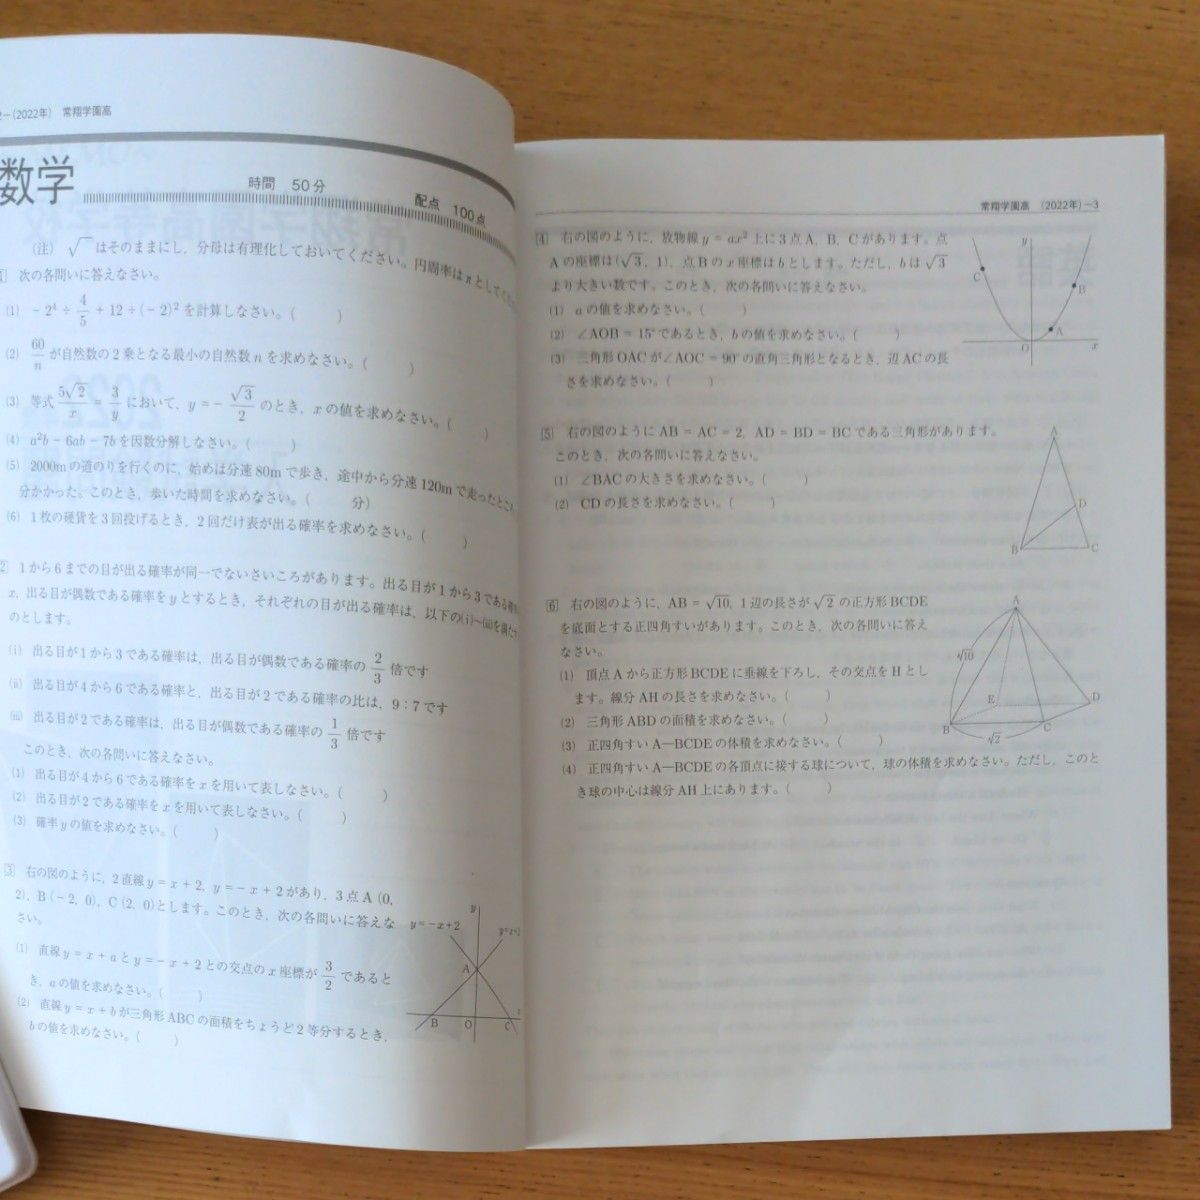 2-(2022年) 常翔学園高
数学
時間 50分
配点 100点
(注) √ はそのままにし,分母は有理化しておいてください。円周率はπとしてくだ
1 次の各問いに答えなさい。
(1) −2⁴ ÷ 4/5 + 12 ÷ (−2)² を計算しなさい。( )
(2) 60/n が自然数の2乗となる最小の自然数 n を求めなさい。( )
(3) 等式 5√2/x = 3/y において, y = − √3/2 のとき, x の値を求めなさい。( )
(4) a²b − 6ab − 7b を因数分解しなさい。( )
(5) 2000m の道のりを行くのに,始めは分速 80m で歩き,途中から分速 120m で走ったところ
分かかった。このとき,歩いた時間を求めなさい。( 分)
(6) 1枚の硬貨を3回投げるとき,2回だけ表が出る確率を求めなさい。( )
2 1から6までの目が出る確率が同一でないさいころがあります。出る目が1から3である確率
x, 出る目が偶数である確率を y とするとき,それぞれの目が出る確率は,以下の(i)~(iii)を満た
のとします。
(i) 出る目が1から3である確率は,出る目が偶数である確率の 2/3 倍です
(ii) 出る目が4から6である確率と,出る目が2である確率の比は,9:7です
(iii) 出る目が2である確率は,出る目が偶数である確率の 1/3 倍です
このとき,次の各問いに答えなさい。
(1) 出る目が4から6である確率を x を用いて表しなさい。( )
(2) 出る目が2である確率を x を用いて表しなさい。( )
(3) 確率 y の値を求めなさい。( )
3 右の図のように,2直線 y = x + 2, y = − x + 2 があり,3点 A (0,
2), B (−2, 0), C (2, 0) とします。このとき,次の各問いに答えな
さい。
(1) 直線 y = x + a と y = − x + 2 との交点の x 座標が 3/2 であると
き, a の値を求めなさい。( )
(2) 直線 y = x + b が三角形 ABC の面積をちょうど2等分するとき,
b の値を求めなさい。( )
y
y=−x+2
y=x+2
A
B
O
C
常翔学園高 (2022年)-3
4 右の図のように,放物線 y = ax² 上に3点 A, B, C があります。点
A の座標は(√3, 1), 点 B の x 座標は b とします。ただし, b は √3
より大きい数です。このとき,次の各問いに答えなさい。
(1) a の値を求めなさい。( )
(2) ∠AOB = 15°であるとき, b の値を求めなさい。( )
(3) 三角形 OAC が∠AOC = 90°の直角三角形となるとき,辺 AC の長
さを求めなさい。( )
y
C
B
A
O
x
5 右の図のように AB = AC = 2, AD = BD = BC である三角形があります。
このとき,次の各問いに答えなさい。
(1) ∠BAC の大きさを求めなさい。( )
(2) CD の長さを求めなさい。( )
A
D
B
C
6 右の図のように, AB = √10, 1辺の長さが √2 の正方形 BCDE
を底面とする正四角すいがあります。このとき,次の各問いに答え
なさい。
(1) 頂点 A から正方形 BCDE に垂線を下ろし,その交点を H とし
ます。線分 AH の長さを求めなさい。( )
(2) 三角形 ABD の面積を求めなさい。( )
(3) 正四角すい A―BCDE の体積を求めなさい。( )
(4) 正四角すい A―BCDE の各頂点に接する球について,球の体積を求めなさい。ただし,このと
き球の中心は線分 AH 上にあります。( )
A
√10
E
D
B
C
√2